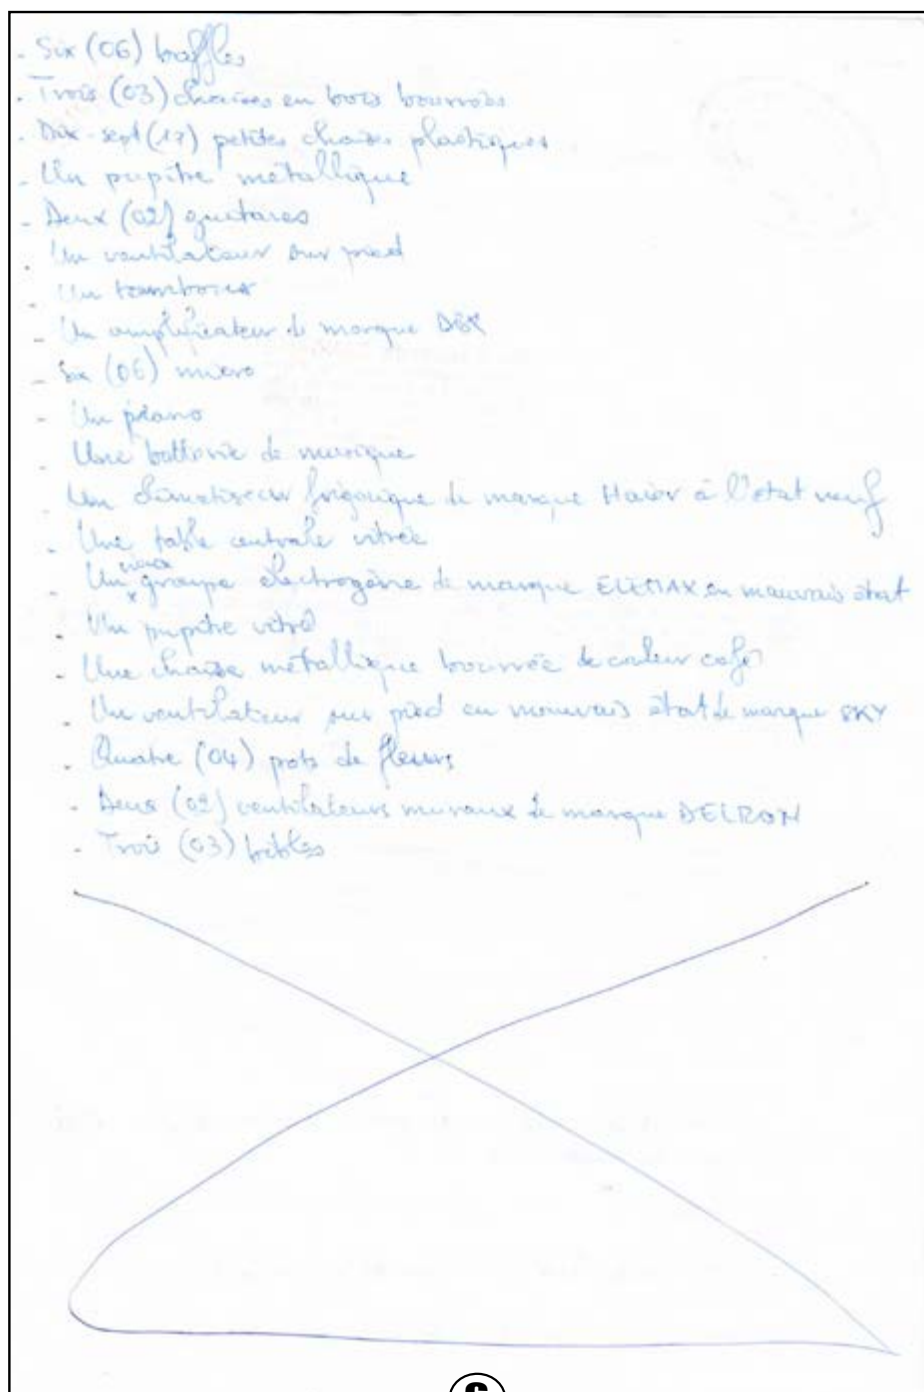 - Six (06) baffles
- Trois (03) chaises en bois bourrées
- Dix-sept (17) petites chaises plastiques
- Un pupitre métallique
- Deux (02) guitares
- Un ventilateur sur pied
- Un tambour
- Un amplificateur de marque DBX
- Six (06) micro
- Un piano
- Une batterie de musique
- Un climatiseur frigorique de marque Haier à l'état neuf
- Une table centrale vitrée
vieux
- Un x groupe électrogène de marque ELEMAX en mauvais état
- Un pupitre vitré
- Une chaise métallique bourrée de couleur café
- Un ventilateur sur pied en mauvais état de marque SKY
- Quatre (04) pots de fleurs
- Deux (02) ventilateurs muraux de marque DELRON
- Trois (03) bibles